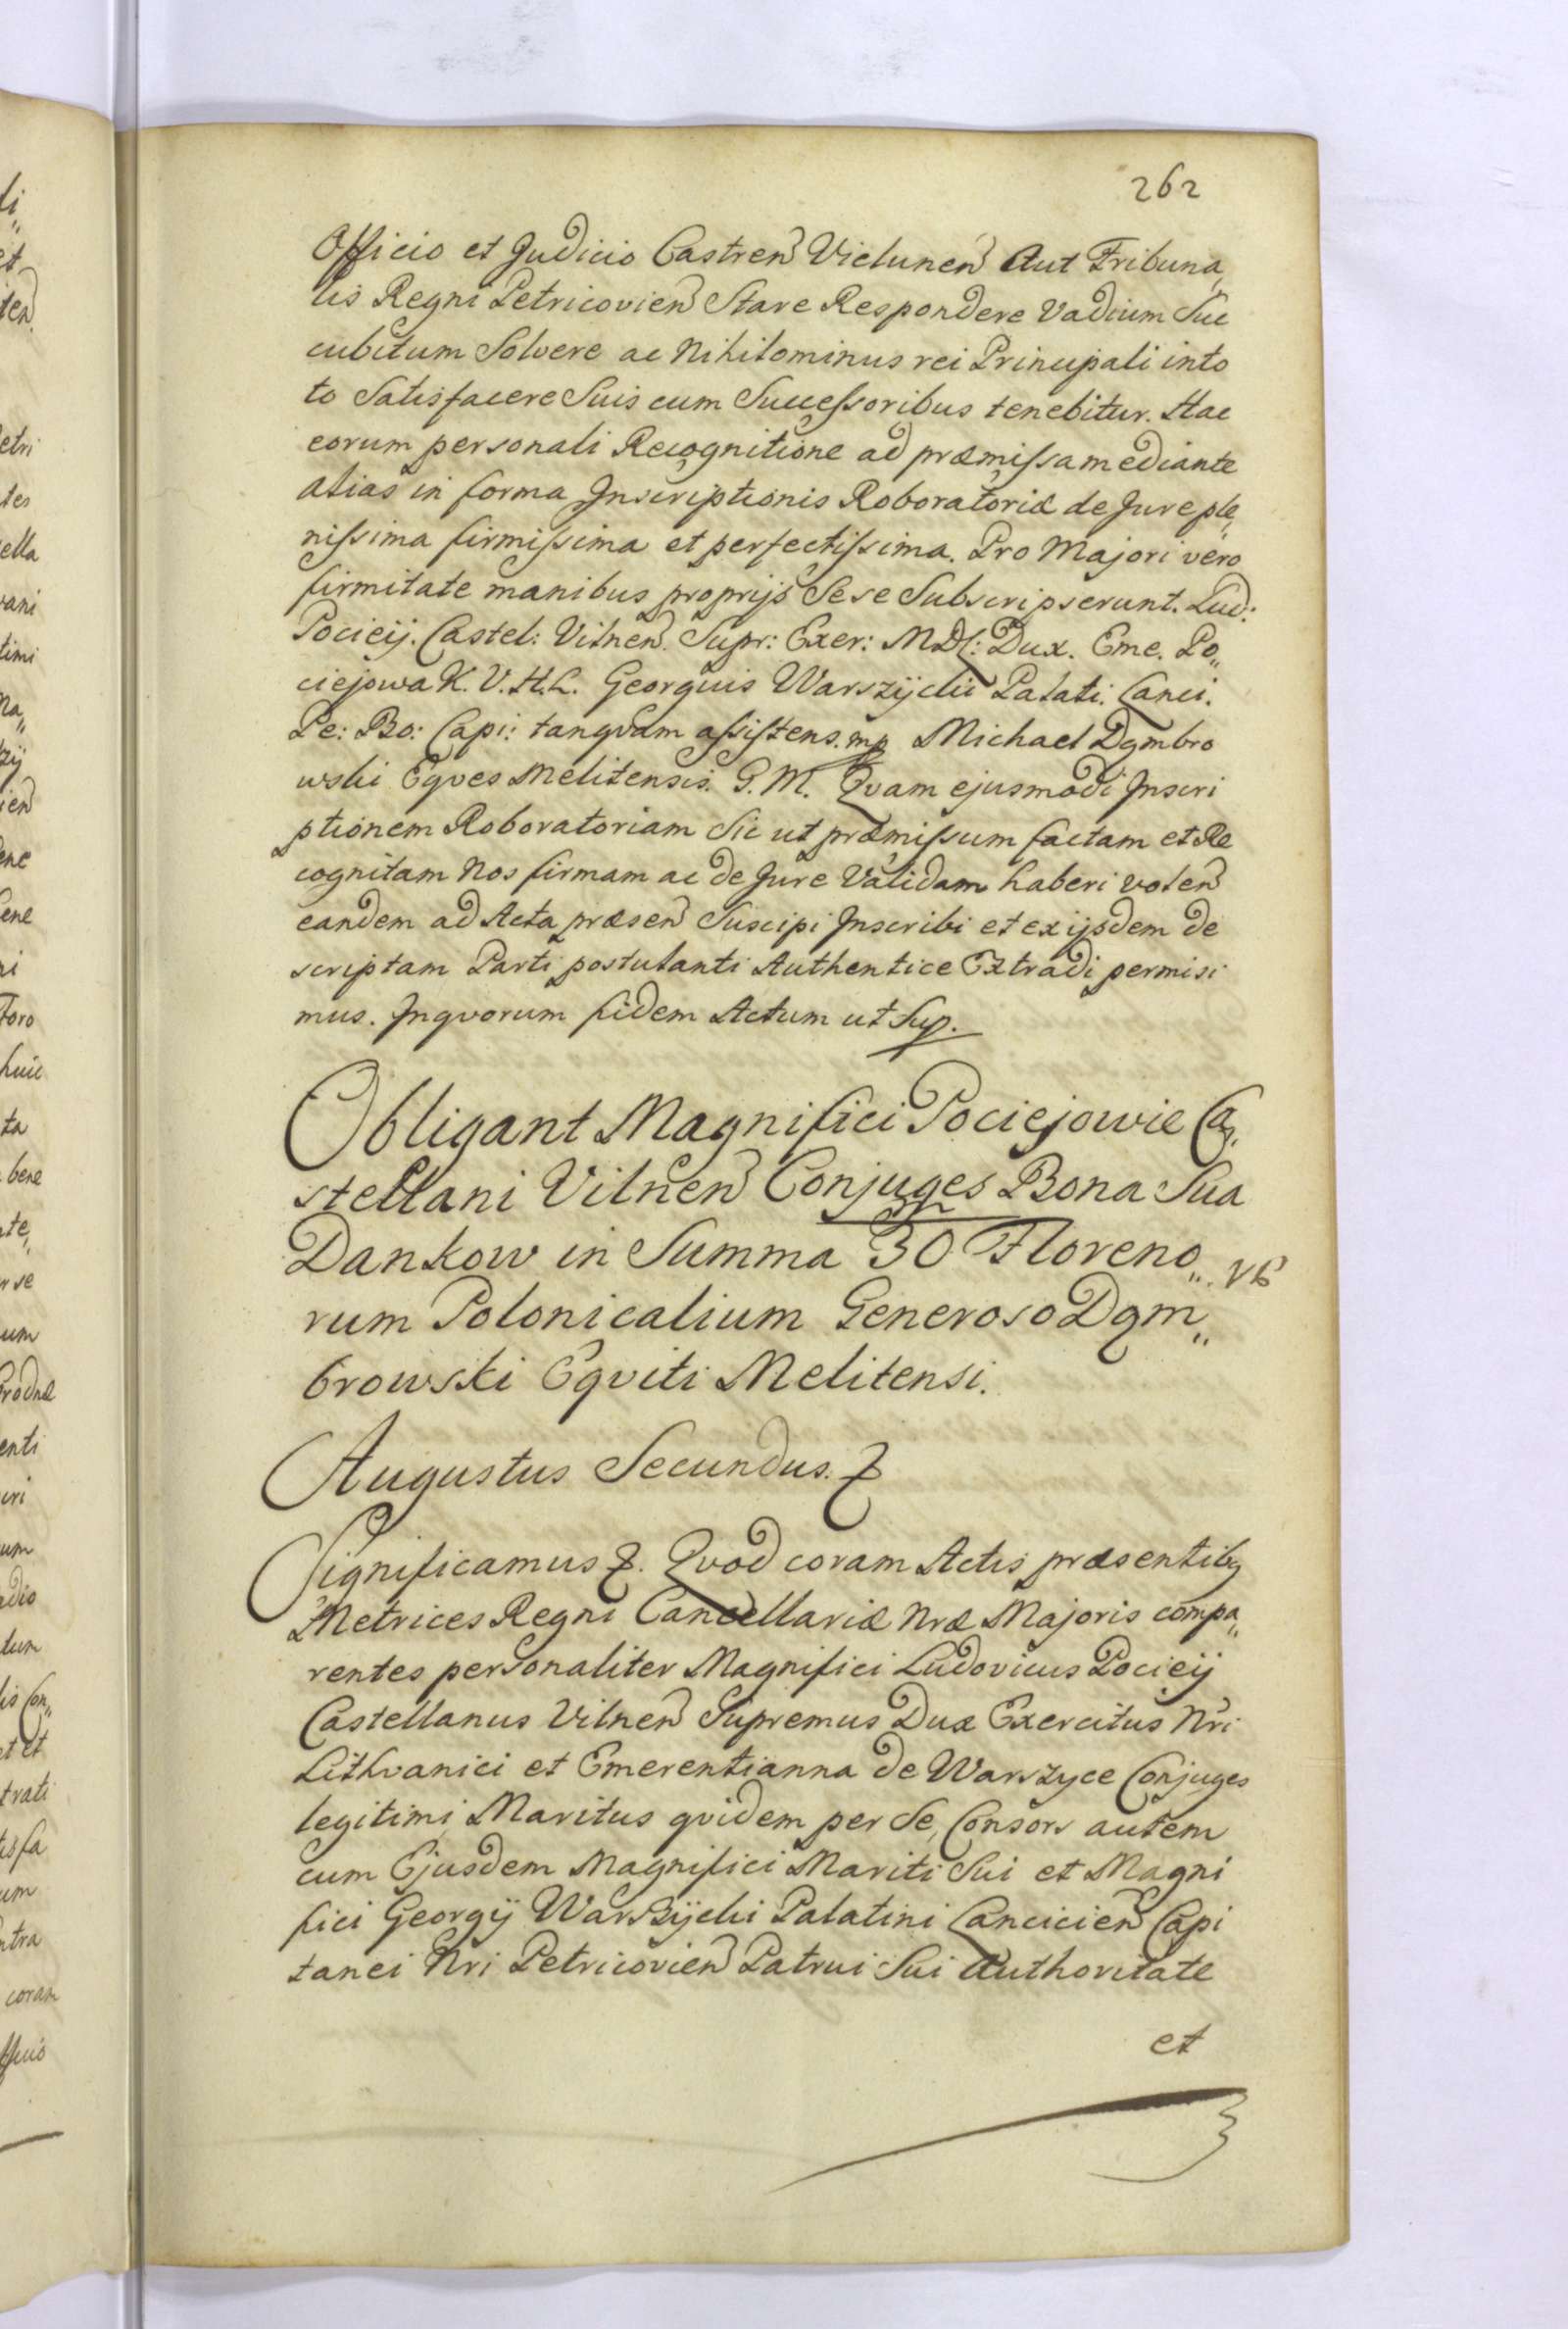 262
Officio et Judicio Castren Vielunen Aut Tribuna„
lis Regni Petricovien Stare Respondere Vadium Suc
cubitum Solvere ac Nihilominus rei Principali into
to Satisfacere Suis cum Successoribus tenebitur. Hac
eorum personali Recognitione ad præmissa mediante
alias in forma Inscriptionis Roboratoriæ de Jure ple„
nissima firmissima et perfectissima. Pro Majori vero
firmitate manibus proprijs Sese Subscripserunt. Lud:
Pocieij. Castel: Vilnen. Supr: Exer: MDL: Dux. Eme. Po„
ciejowa K. V. H. L. Georgius Warszÿcki Palati. Lanci.
Pe: Bo: Capi: tanqvam assistens. mp Michael Dąmbro
wski Eqves Melitensis. G. M. Qvam ejusmodi Inscri
ptionem Roboratoriam Sic ut præmissum factam et Re
cognitam Nos firmam ac de Jure Validam haberi volen
eandem ad Acta præsen Suscipi Inscribi et ex ijsdem de
scriptam Parti postulanti Authentice Extradi permisi
mus. Inqvorum fidem Actum ut Sup.
Obligant Magnifici Pociejowie Ca„
stellani Vilnen Conjuges Bona Sua
Dankow in Summa 30 m Floreno„
rum Polonicalium Generoso Dąm„
browski Eqviti Melitensi.
Augustus Secundus. &
Significamus &. Qvod coram Actis præsentibq
Metrices Regni Cancellariæ Nræ Majoris compa„
rentes personaliter Magnifici Ludovicus Pocieij
Castellanus Vilnen Supremus Dux Exercitus Nri
Lithvanici et Emerentianna de Warszyce Conjuges
legitimi Maritus qvidem per Se, Consors autem
cum Ejusdem Magnifici Mariti Sui et Magni
fici Georgij Warszÿcki Palatini Lancicien Capi
tanei Nri Petricovien Patrui Sui Authoritate
et